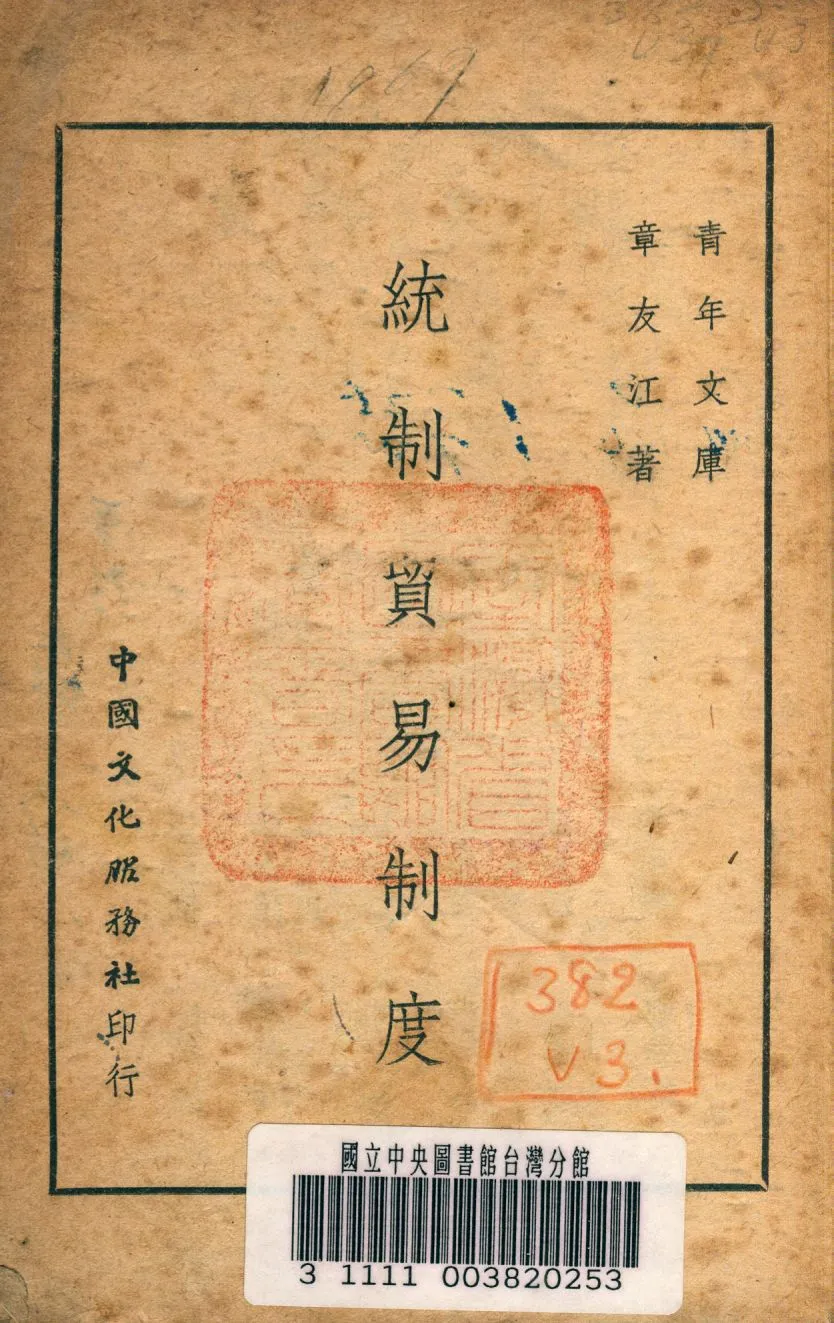 1969
青年文庫
章友江著
統制貿易制度
中國文化服務社印行
382
V3.
國立中央圖書館台灣分館
3 1111 003820253